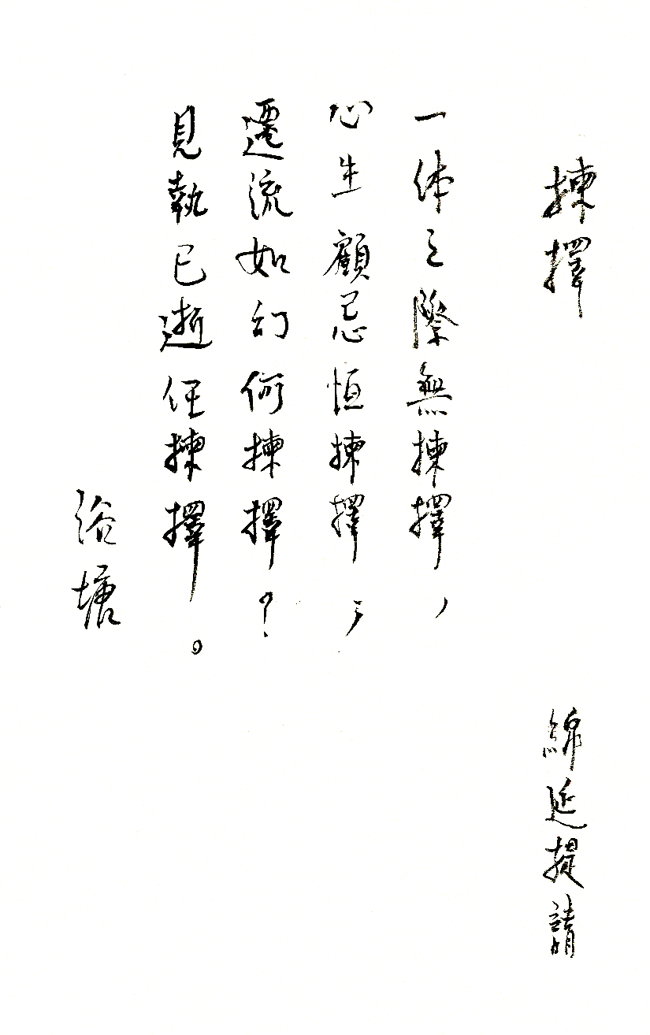 揀擇
綿延提請
一体之際無揀擇，
心生顧忌恒揀擇；
遷流如幻何揀擇？
見執已逝任揀擇。
浴塘